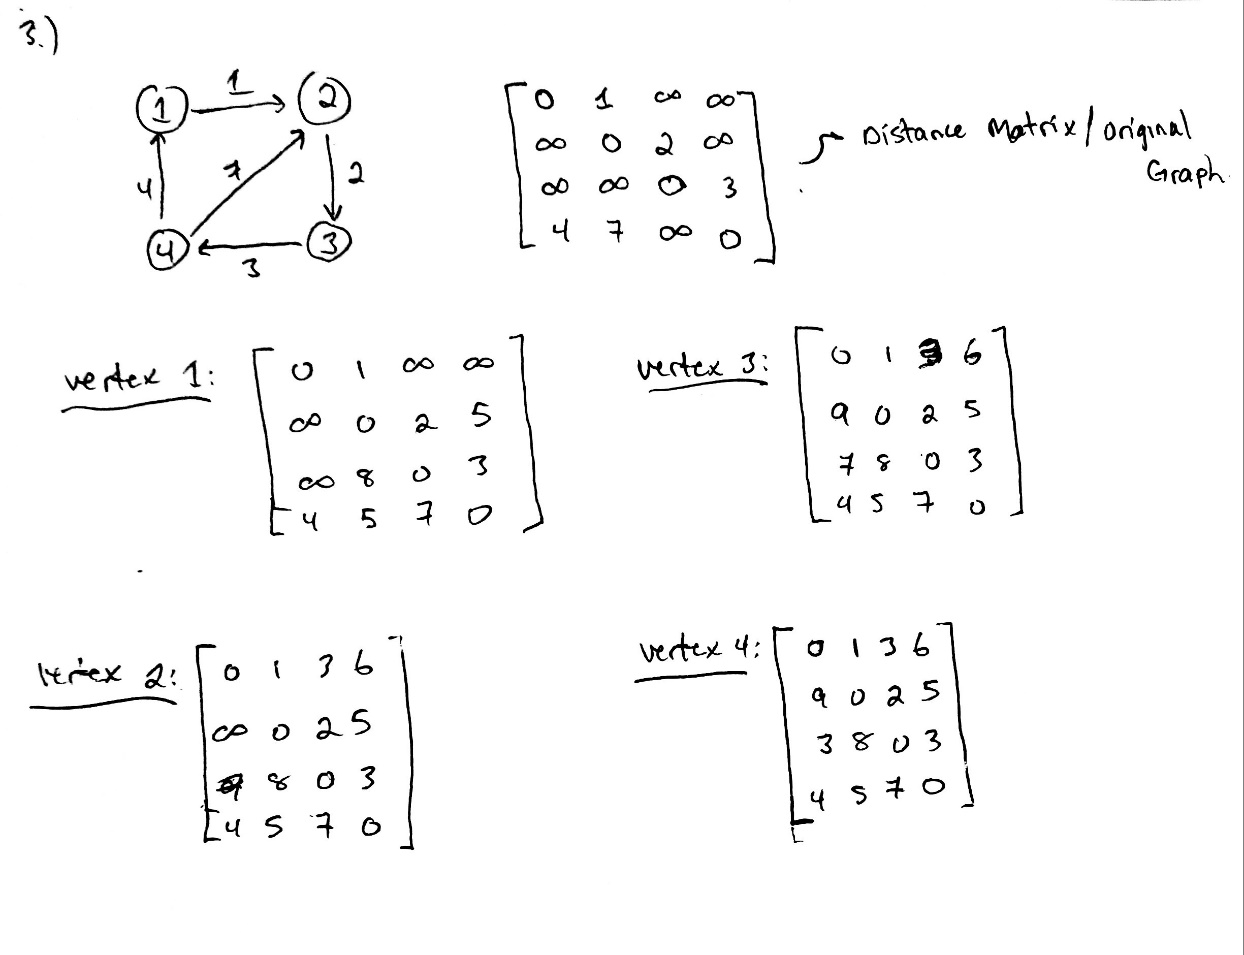 3.)
1 1 2
4 7 2
4 3 3
0 1 ∞ ∞
∞ 0 2 ∞
∞ ∞ 0 3
4 7 ∞ 0
Distance Matrix/original
Graph
vertex 1:
0 1 ∞ ∞
∞ 0 2 5
∞ 8 0 3
4 5 7 0
vertex 3:
0 1 3 6
9 0 2 5
7 8 0 3
4 5 7 0
vertex 2:
0 1 3 6
∞ 0 2 5
8 0 3
4 5 7 0
vertex 4:
0 1 3 6
9 0 2 5
3 8 0 3
4 5 7 0